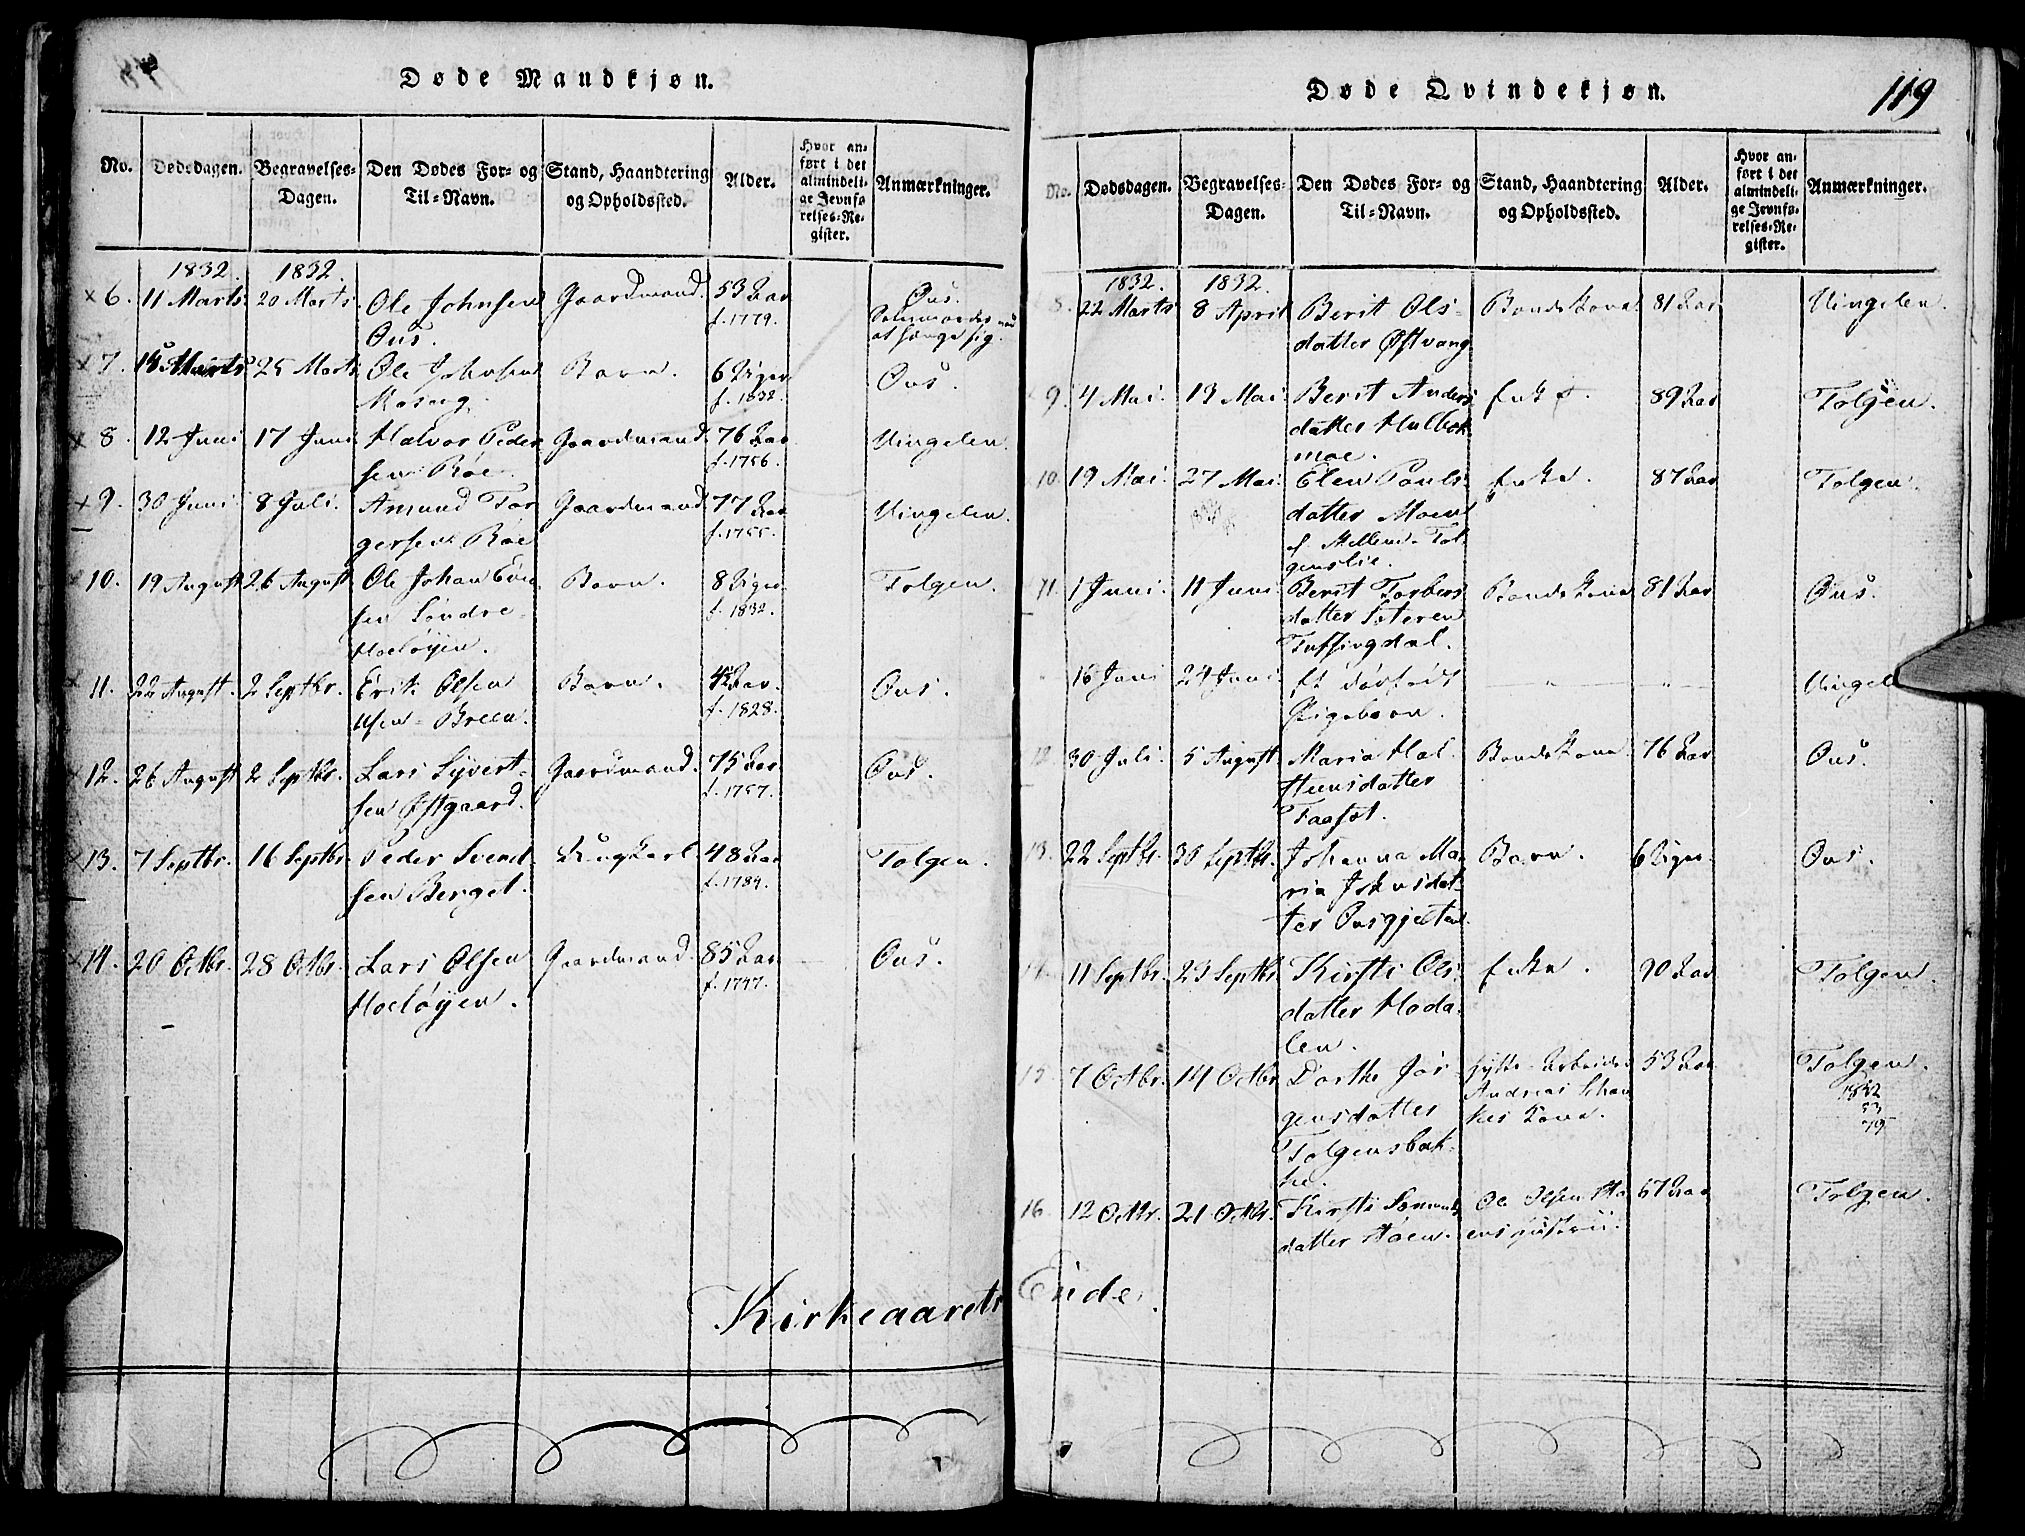 Døde Mandkjøn.
No. Dødsdagen. Begravelses-Dagen. Den Dødes For- og Til-Navn. Stand, Haandtering og Opholdssted. Alder. Hvor anført i det almindelige Jevnførelses-Register. Anmærkninger.
1832. 1832.
6. 11 Marts 20 Marts Ole Johnsen Gaardmand. 53 Aar Ous.
Ous. f. 1779. at hænge sig.
7. Marts 25 Marts Ole Johnsen Barn. 6 Uger Ous.
f. 1832.
8. 12 Juni 17 Juni Halvor Peder- Gaardmand 76 Aar Vingelen.
sen Røe. f. 1756.
9. 30 Juni 8 Juli. Amund Tor- Gaardmand 77 Aar Vingelen.
gersen Røe f. 1755.
10. 19 August 26 August Ole Johan Barn. 8 Uger Tolgen.
sen Søndre- f. 1832.
Hodøyen.
11. 22 August. 2 Septbr. Erik Olsen Barn. Aar. Ous.
Breen. f. 1828.
12. 26 August 2 Septbr. Lars Syvert- Gaardmand. 75 Aar Ous.
sen Østgaard. f. 1757.
13. 7 Septbr. 16 Septbr. Peder Svend- 48 Aar Tolgen.
sen Berget. f. 1784.
14. 20 Octbr. 28 Octbr. Lars Olsen Gaardmand. 85 Aar Ous.
Hodøyen. f. 1747.
Kirkeaarets
Døde Qvindekjøn. 119
No. Dødsdagen. Begravelses-Dagen. Den Dødes For- og Til-Navn. Stand, Haandtering og Opholdssted. Alder. Hvor anført i det almindelige Jevnførelses-Register. Anmærkninger.
1832. 1832.
8. 22 Marts 8 April Berit Ols- Bondekone 81 Aar Vingelen.
datter Østvang
9. 4 Mai. 13 Mai. Berit Anders Enke. 89 Aar Tolgen.
datter Hulbæk
moe.
10. 19 Mai. 27 Mai. Elen Pouls- Enke. 87 Aar Tolgen.
datter Moen
11. 1 Juni. 11 Juni. Berit Torbers Bondekone 81 Aar Ous.
datter
Tufsingdal.
16 Juni 24 Juni Et dødfødt Vingel
Pigebarn.
12. 30 Juli. 5 August Maria Hal- Bondekone. 76 Aar Ous.
steensdatter
13. 22 Septbr. 30 Septbr. Johanna Ma- Barn. 6 Uger. Ous.
ria Johnsdat-
ter
14. 11 Septbr. 23 Septbr. Kirsti Ols- Enke. 90 Aar Tolgen.
datter Hoda-
len.
15. 7 Octbr. 14 Octbr Dorthe Jør- Hytte-Arbeider 53 Aar Tolgen.
gensdatter Andreas
Tolgensbak- Kone. 1832
ke. 53
79
16. 12 Octbr. 21 Octbr. Kirsti Ole Olsen 67 Aar Tolgen.
datter
Ende.